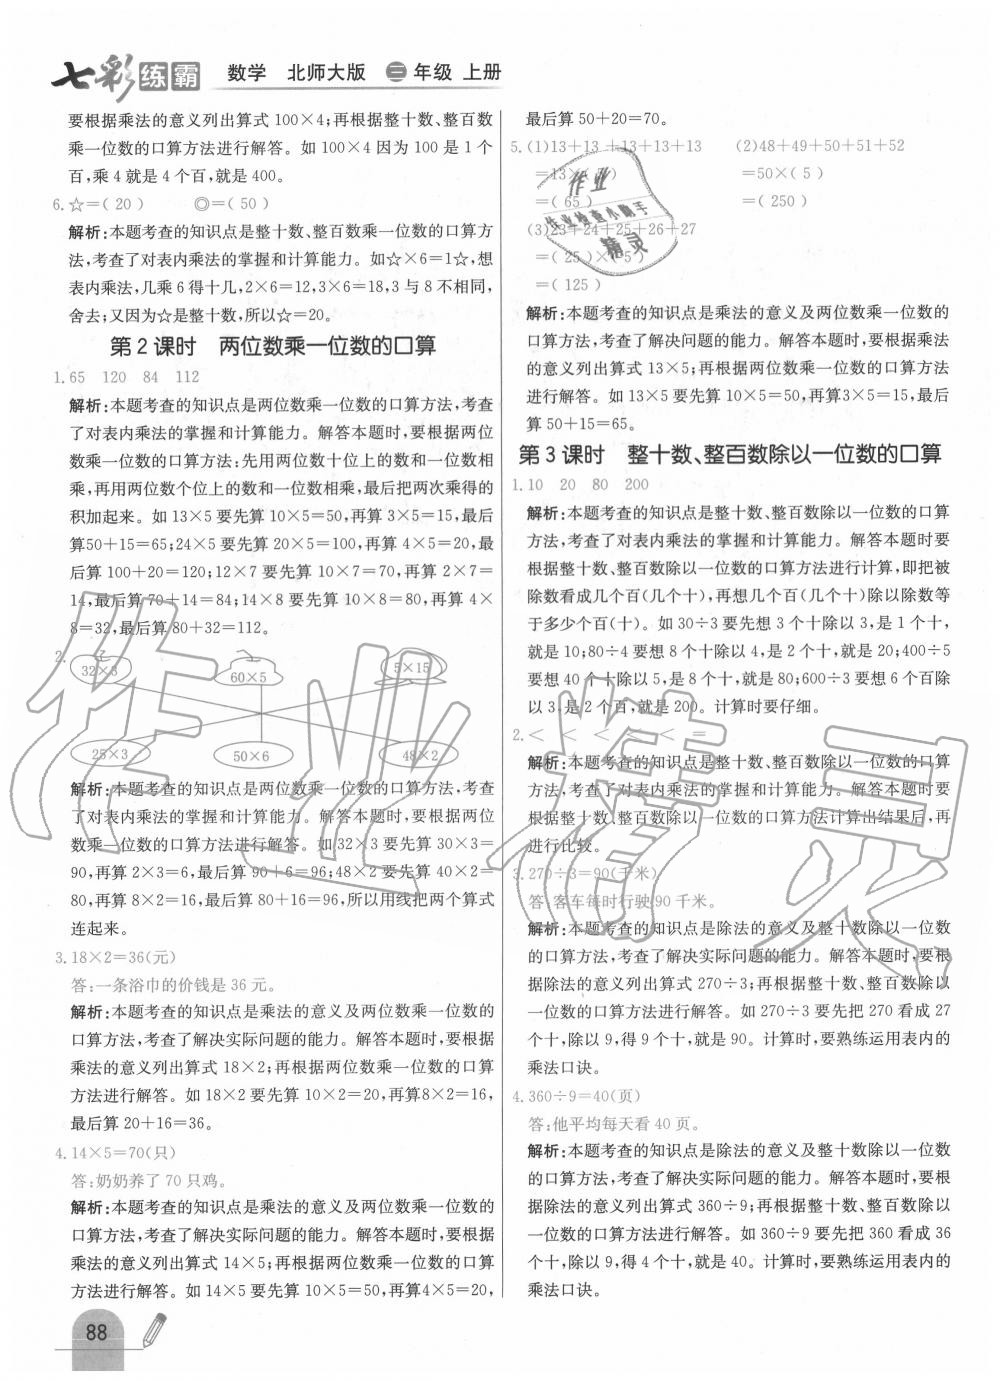 七彩练霸 数学 北师大版 三年级 上册
要根据乘法的意义列出算式 100×4;再根据整十数、整百数
乘一位数的口算方法进行解答。如 100×4 因为 100 是 1 个
百,乘 4 就是 4 个百,就是 400。
6.☆=( 20 ) ◎=( 50 )
解析:本题考查的知识点是整十数、整百数乘一位数的口算方
法,考查了对表内乘法的掌握和计算能力。如☆×6=1☆,想
表内乘法,几乘 6 得十几,2×6=12,3×6=18,3 与 8 不相同,
舍去;又因为☆是整十数,所以☆=20。
第 2 课时 两位数乘一位数的口算
1.65 120 84 112
解析:本题考查的知识点是两位数乘一位数的口算方法,考查
了对表内乘法的掌握和计算能力。解答本题时,要根据两位
数乘一位数的口算方法:先用两位数十位上的数和一位数相
乘,再用两位数个位上的数和一位数相乘,最后把两次乘得的
积加起来。如 13×5 要先算 10×5=50,再算 3×5=15,最后
算50+15=65;24×5 要先算 20×5=100,再算 4×5=20,最
后算 100+20=120;12×7 要先算 10×7=70,再算 2×7=
14,最后算 70+14=84;14×8 要先算 10×8=80,再算 4×
8=32,最后算 80+32=112。
2.
32×3 60×5 5×15
25×3 50×6 48×2
解析:本题考查的知识点是两位数乘一位数的口算方法,考查
了对表内乘法的掌握和计算能力。解答本题时,要根据两位
数乘一位数的口算方法进行解答。如 32×3 要先算 30×3=
90,再算 2×3=6,最后算 90+6=96;48×2 要先算 40×2=
80,再算 8×2=16,最后算 80+16=96,所以用线把两个算式
连起来。
3.18×2=36(元)
答:一条浴巾的价钱是 36 元。
解析:本题考查的知识点是乘法的意义及两位数乘一位数的
口算方法,考查了解决实际问题的能力。解答本题时,要根据
乘法的意义列出算式 18×2;再根据两位数乘一位数的口算
方法进行解答。如 18×2 要先算 10×2=20,再算8×2=16,
最后算 20+16=36。
4.14×5=70(只)
答:奶奶养了 70 只鸡。
解析:本题考查的知识点是乘法的意义及两位数乘一位数的
口算方法,考查了解决实际问题的能力。解答本题时,要根据
乘法的意义列出算式 14×5;再根据两位数乘一位数的口算
方法进行解答。如 14×5 要先算 10×5=50,再算4×5=20,
最后算 50+20=70。
5.(1)13+13+13+13+13 (2)48+49+50+51+52
=13×( ) =50×( 5 )
=( 65 ) =( 250 )
(3)23+24+25+26+27
=( 25 )×( 5 )
=( 125 )
作业
作业检查小助手
精灵
解析:本题考查的知识点是乘法的意义及两位数乘一位数的
口算方法,考查了解决问题的能力。解答本题时,要根据乘法
的意义列出算式 13×5;再根据两位数乘一位数的口算方法
进行解答。如 13×5 要先算 10×5=50,再算3×5=15,最后
算 50+15=65。
第 3 课时 整十数、整百数除以一位数的口算
1.10 20 80 200
解析:本题考查的知识点是整十数、整百数除以一位数的口算
方法,考查了对表内乘法的掌握和计算能力。解答本题时要
根据整十数、整百数除以一位数的口算方法进行计算,即把被
除数看成几个百(几个十),再想几个百(几个十)除以除数等
于多少个百(十)。如 30÷3 要先想 3 个十除以 3,是 1 个十,
就是 10;80÷4 要想 8 个十除以 4,是 2 个十,就是 20;400÷5
要想 40 个十除以 5,是 8 个十,就是 80;600÷3 要想 6 个百除
以 3,是 2 个百,就是 200。计算时要仔细。
2.< < < < < =
解析:本题考查的知识点是整十数、整百数除以一位数的口算
方法,考查了对表内乘法的掌握和计算能力。解答本题时要
根据整十数、整百数除以一位数的口算方法计算出结果后,再
进行比较。
3.270÷3=90(千米)
答:客车每时行驶 90 千米。
解析:本题考查的知识点是除法的意义及整十数除以一位数
的口算方法,考查了解决实际问题的能力。解答本题时,要根
据除法的意义列出算式 270÷3;再根据整十数、整百数除以
一位数的口算方法进行解答。如 270÷3 要先把 270 看成 27
个十,除以 9,得 9 个十,就是 90。计算时,要熟练运用表内的
乘法口诀。
4.360÷9=40(页)
答:他平均每天看 40 页。
解析:本题考查的知识点是除法的意义及整十数除以一位数
的口算方法,考查了解决实际问题的能力。解答本题时,要根
据除法的意义列出算式 360÷9;再根据整十数、整百数除以
一位数的口算方法进行解答。如 360÷9 要先把 360 看成 36
个十,除以 9,得 4 个十,就是 40。计算时,要熟练运用表内的
乘法口诀。
88
作业精灵